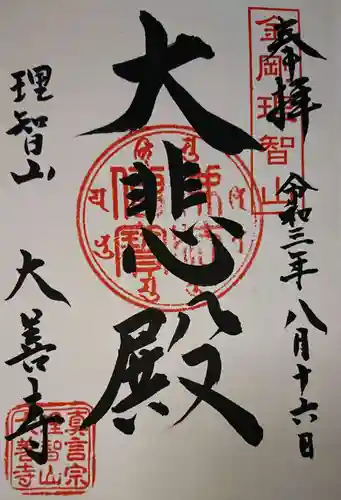 奉拝
令和三年八月十六日
金岡理智山
大悲殿
佛法僧寶
理智山
大善寺
真言宗
理智山
大善寺